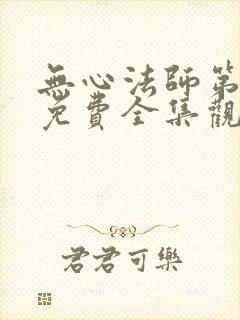 無心法師第
免費全集觀
君君可樂